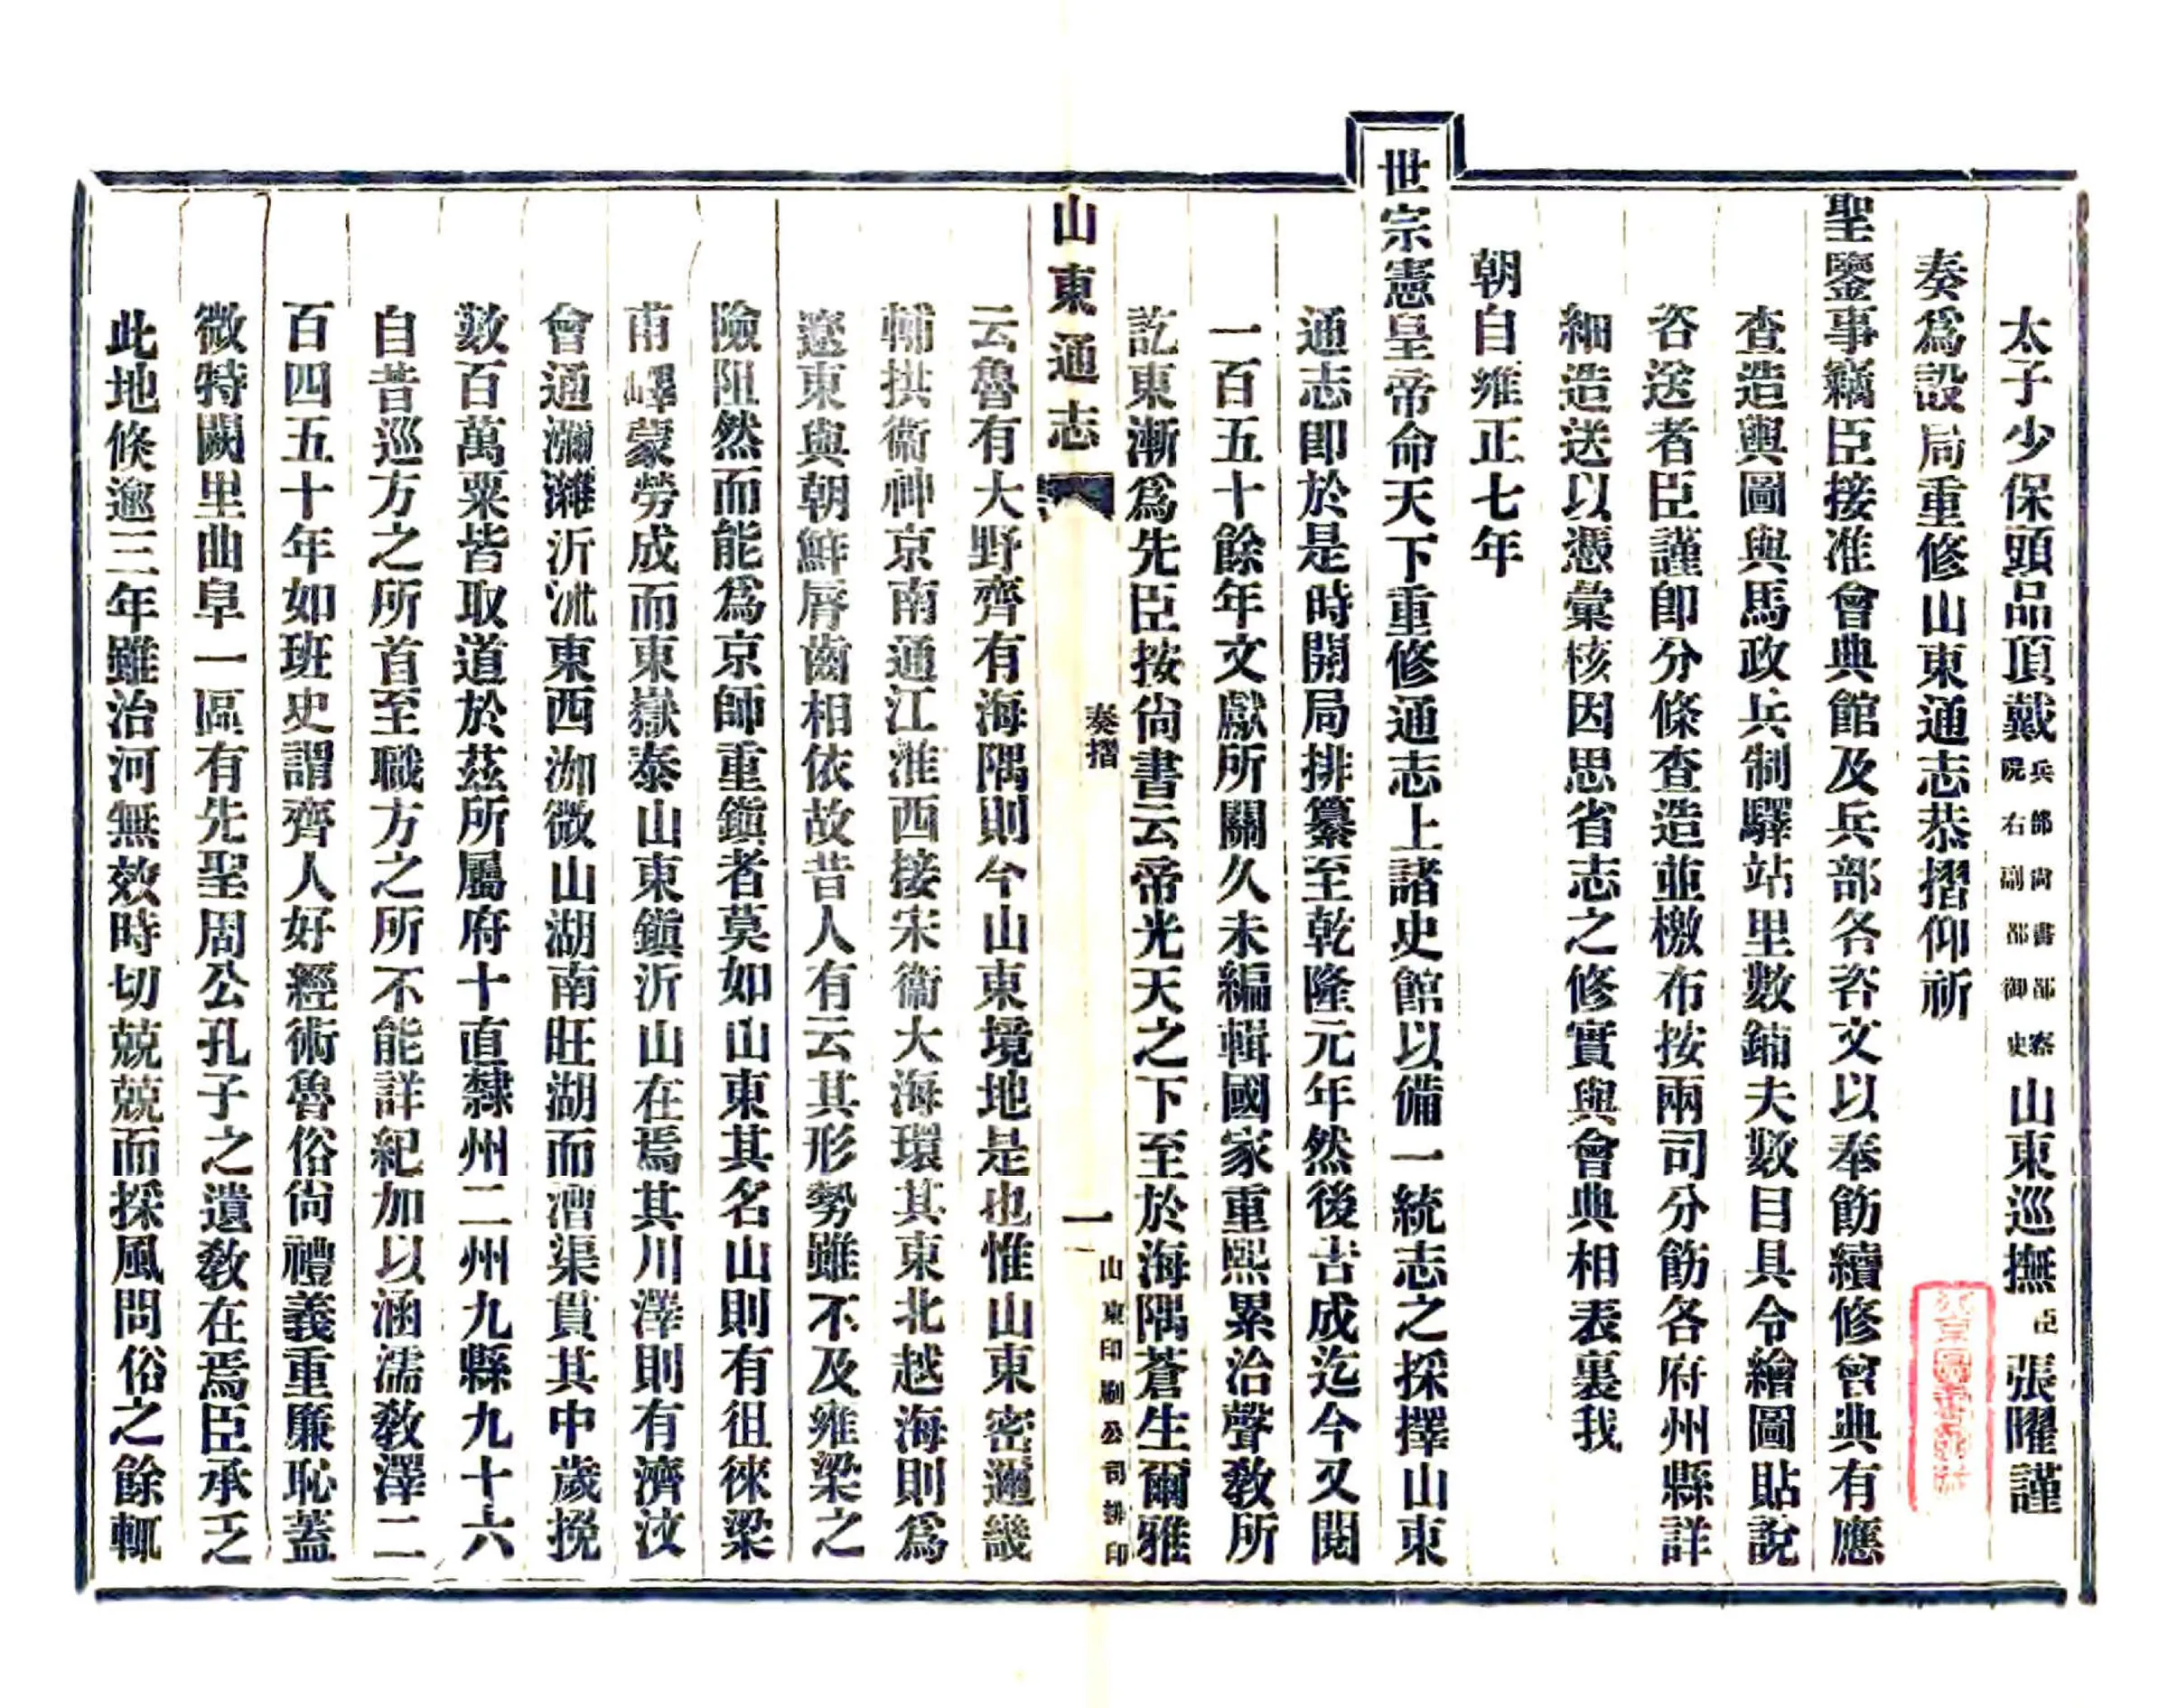 太子少保頭品頂戴兵部尚書都察院右副都御史山東巡撫臣張曜謹
奏為設局重修山東通志恭摺仰祈
聖鑒事竊臣接准會典館及兵部各咨文以奉飭續修會典有應
查造輿圖與馬政兵制驛站里數鋪夫數目具令繪圖貼說
咨送者臣謹即分條查造並檄布按兩司分飭各府州縣詳
細造送以憑彙核因思省志之修實與會典相表裏我
朝自雍正七年
世宗憲皇帝命天下重修通志上諸史館以備一統志之採擇山東
通志即於是時開局排纂至乾隆元年然後告成迄今又閱
一百五十餘年文獻所關久未編輯國家重熙累洽聲教所
訖東漸為先臣按尚書云帝光天之下至於海隅蒼生爾雅
山東通志
奏摺
一
山東印刷公司排印
云魯有大野齊有海隅則今山東境地是也惟山東密邇畿
輔拱衞神京南通江淮西接宋衞大海環其東北越海則為
遼東與朝鮮脣齒相依故昔人有云其形勢雖不及雍梁之
險阻然而能為京師重鎮者莫如山東其名山則有徂徠梁
甫嶧蒙勞成而東嶽泰山東鎮沂山在焉其川澤則有濟汶
會通瀰濰沂沭東西泇微山湖南旺湖而漕渠貫其中歲挽
數百萬粟皆取道於茲所屬府十直隸州二州九縣九十六
自昔巡方之所首至職方之所不能詳紀加以涵濡教澤二
百四五十年如班史謂齊人好經術魯俗尚禮義重廉恥蓋
微特闕里曲阜一區有先聖周公孔子之遺教在焉臣承乏
此地倏逾三年雖治河無效時切兢兢而採風問俗之餘輒